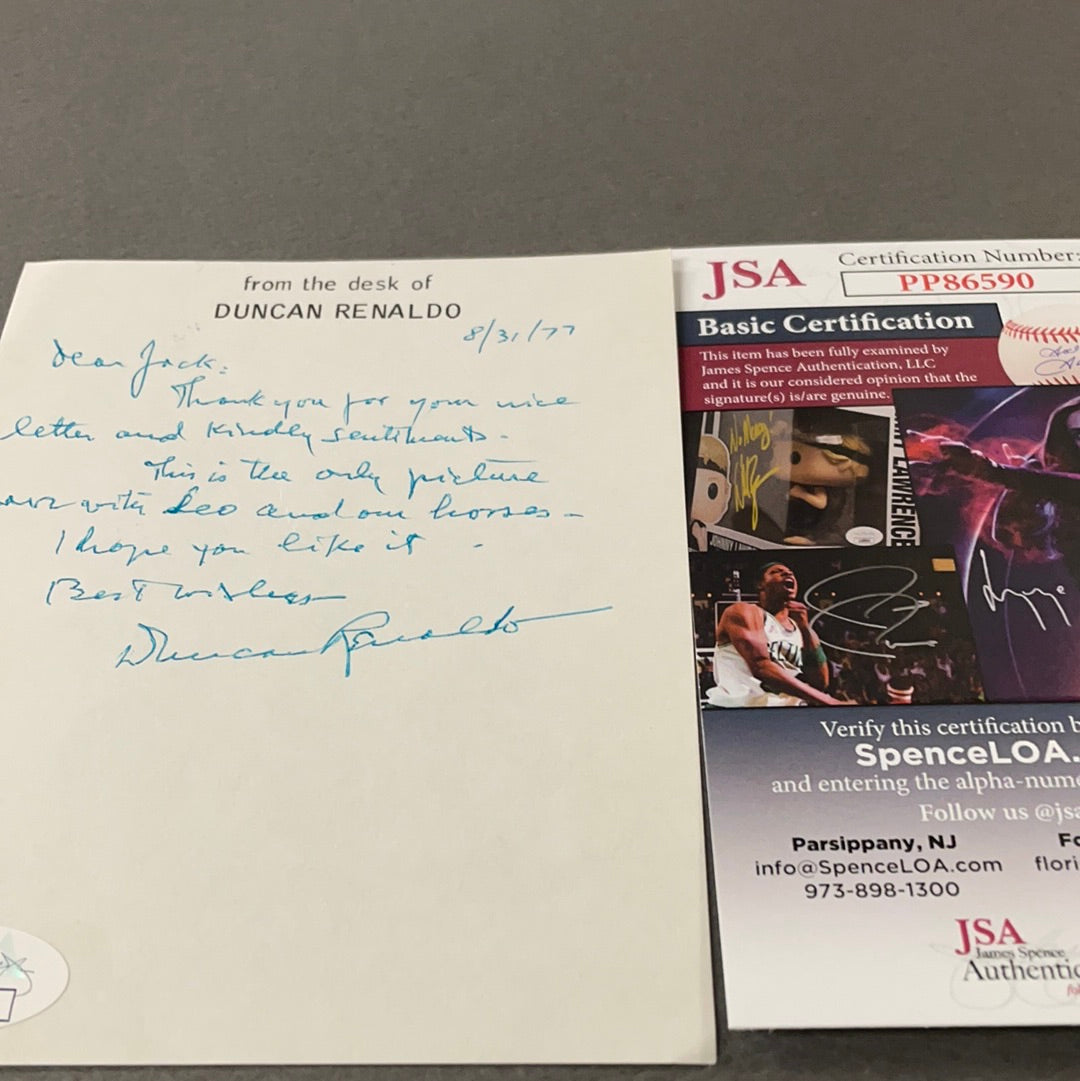 from the desk of
DUNCAN RENALDO
8/31/77
Dear Jack:
Thank you for your nice
letter and kindly sentiments -
This is the only picture
with Leo and our horses -
I hope you like it -
Best wishes
Duncan Renaldo
JSA
Certification Number:
PP86590
Basic Certification
This item has been fully examined by
James Spence Authentication, LLC
and it is our considered opinion that the
signature(s) is/are genuine.
No Mercy!
LAWRENCE
JOHNNY
JSA
CELTI
Verify this certification b
SpenceLOA.
and entering the alpha-nume
Follow us @jsa
Parsippany, NJ
info@SpenceLOA.com
973-898-1300
Fo
flori
JSA
James Spence
Authentic